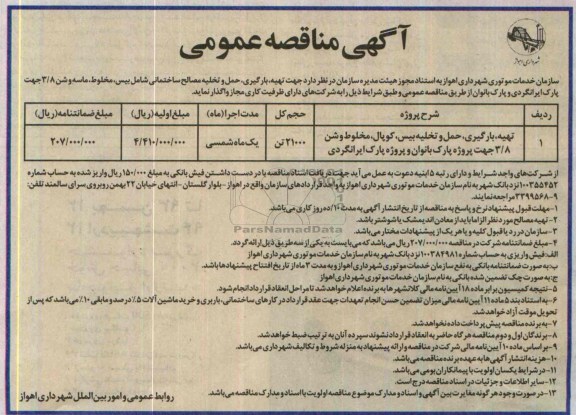 آگهی مناقصه عمومی
شهرداری اهواز
سازمان خدمات موتوری شهرداری اهواز به استناد مجوز هیئت مدیره سازمان در نظر دارد جهت تهیه، بارگیری، حمل و تخلیه مصالح ساختمانی شامل بیس، مخلوط، ماسه وشن ۳/۸ جهت
پارک ایرانگردی و پارک بانوان از طریق مناقصه عمومی وطبق شرایط ذیل را به شرکت‌های دارای ظرفیت کاری مجاز واگذار نماید.
ردیف شرح پروژه حجم کل مدت اجرا (ماه) مبلغ اولیه (ریال) مبلغ ضمانتنامه (ریال)
۱ تهیه، بارگیری، حمل و تخلیه بیس، کوپال، مخلوط وشن ۳/۸ جهت پروژه پارک بانوان و پروژه پارک ایرانگردی ۲۱۰۰۰ تن یک ماه شمسی ۴/۴۱۰/۰۰۰/۰۰۰ ۲۰۷/۰۰۰/۰۰۰
از شرکت‌های واجد شرایط و دارای رتبه ۵ ابنیه دعوت به عمل می آید جهت دریافت اسناد مناقصه با در دست داشتن فیش بانکی به مبلغ ۱۵۰/۰۰۰ ریال واریز شده به حساب شماره
۱۰۰۳۵۵۴۵۲ نزد بانک شهر به نام سازمان خدمات موتوری شهرداری اهواز به واحد قراردادهای سازمان واقع در اهواز - بلوار گلستان - انتهای خیابان ۲۲ بهمن روبروی سرای سالمند تلفن:
۹-۳۳۹۹۵۶۸ مراجعه نمایند.
۱- مهلت قبول پیشنهاد نرخ و پاسخ به مناقصه از تاریخ انتشار آگهی به مدت ۱۰/ده روز کاری می‌باشد.
۲- تهیه مصالح مورد نظر الزاما باید از معادن اندیمشک یا شوشتر باشد.
۳- سازمان در رد یا قبول کلیه و یا هر یک از پیشنهادات مختار می‌باشد.
۴- مبلغ ضمانتنامه شرکت در مناقصه ۲۰۷/۰۰۰/۰۰۰ ریال می‌باشد که می‌بایست به یکی از سه طریق ذیل ارائه گردد.
الف: فیش واریزی به حساب شماره ۱۰۰۳۸۴۹۸۱ نزد بانک شهر به نام سازمان خدمات موتوری شهرداری اهواز
ب- به صورت ضمانتنامه بانکی به نفع سازمان خدمات موتوری شهرداری اهواز و به مدت ۳ ماه از تاریخ افتتاح پیشنهادها باشد.
ج- به صورت چک تضمین شده بانکی به نام سازمان خدمات موتوری شهرداری اهواز
۵- نتیجه کمیسیون برابر ماده ۱۸ آیین نامه مالی کلانشهرها به برنده اعلام خواهد شد تا مراحل انعقاد قرارداد انجام شود.
۶- به استناد بند ۵ ماده ۱۱ آیین نامه مالی میزان تضمین حسن انجام تعهدات جهت عقد قرارداد در کارهای ساختمانی، باربری و خرید ماشین آلات ۵٪ درصد و مابقی ۱۰٪ می‌باشد که پس از
تحویل موقت آزاد خواهد شد.
۷- به برنده مناقصه پیش پرداخت داده نخواهد شد.
۸- برندگان اول و دوم مناقصه هرگاه حاضر به انعقاد قرارداد نشوند سپرده آنان به ترتیب ضبط خواهد شد.
۹- بر اساس ماده ۱۰ آیین نامه مالی شرکت در مناقصه و ارائه پیشنهاد به منزله شروط و تکالیف شهرداری می‌باشد.
۱۰- هزینه انتشار آگهی ها به عهده برنده مناقصه می‌باشد.
۱۱- در شرایط یکسان اولویت با پیمانکاران بومی می‌باشد.
۱۲- سایر اطلاعات و جزئیات در اسناد مناقصه درج است.
۱۳- در صورت وجود هرگونه مغایرت بین آگهی و اسناد و مدارک موضوع مناقصه اولویت با اسناد و مدارک مناقصه می‌باشد.
روابط عمومی و امور بین الملل شهرداری اهواز
ParsNamadData